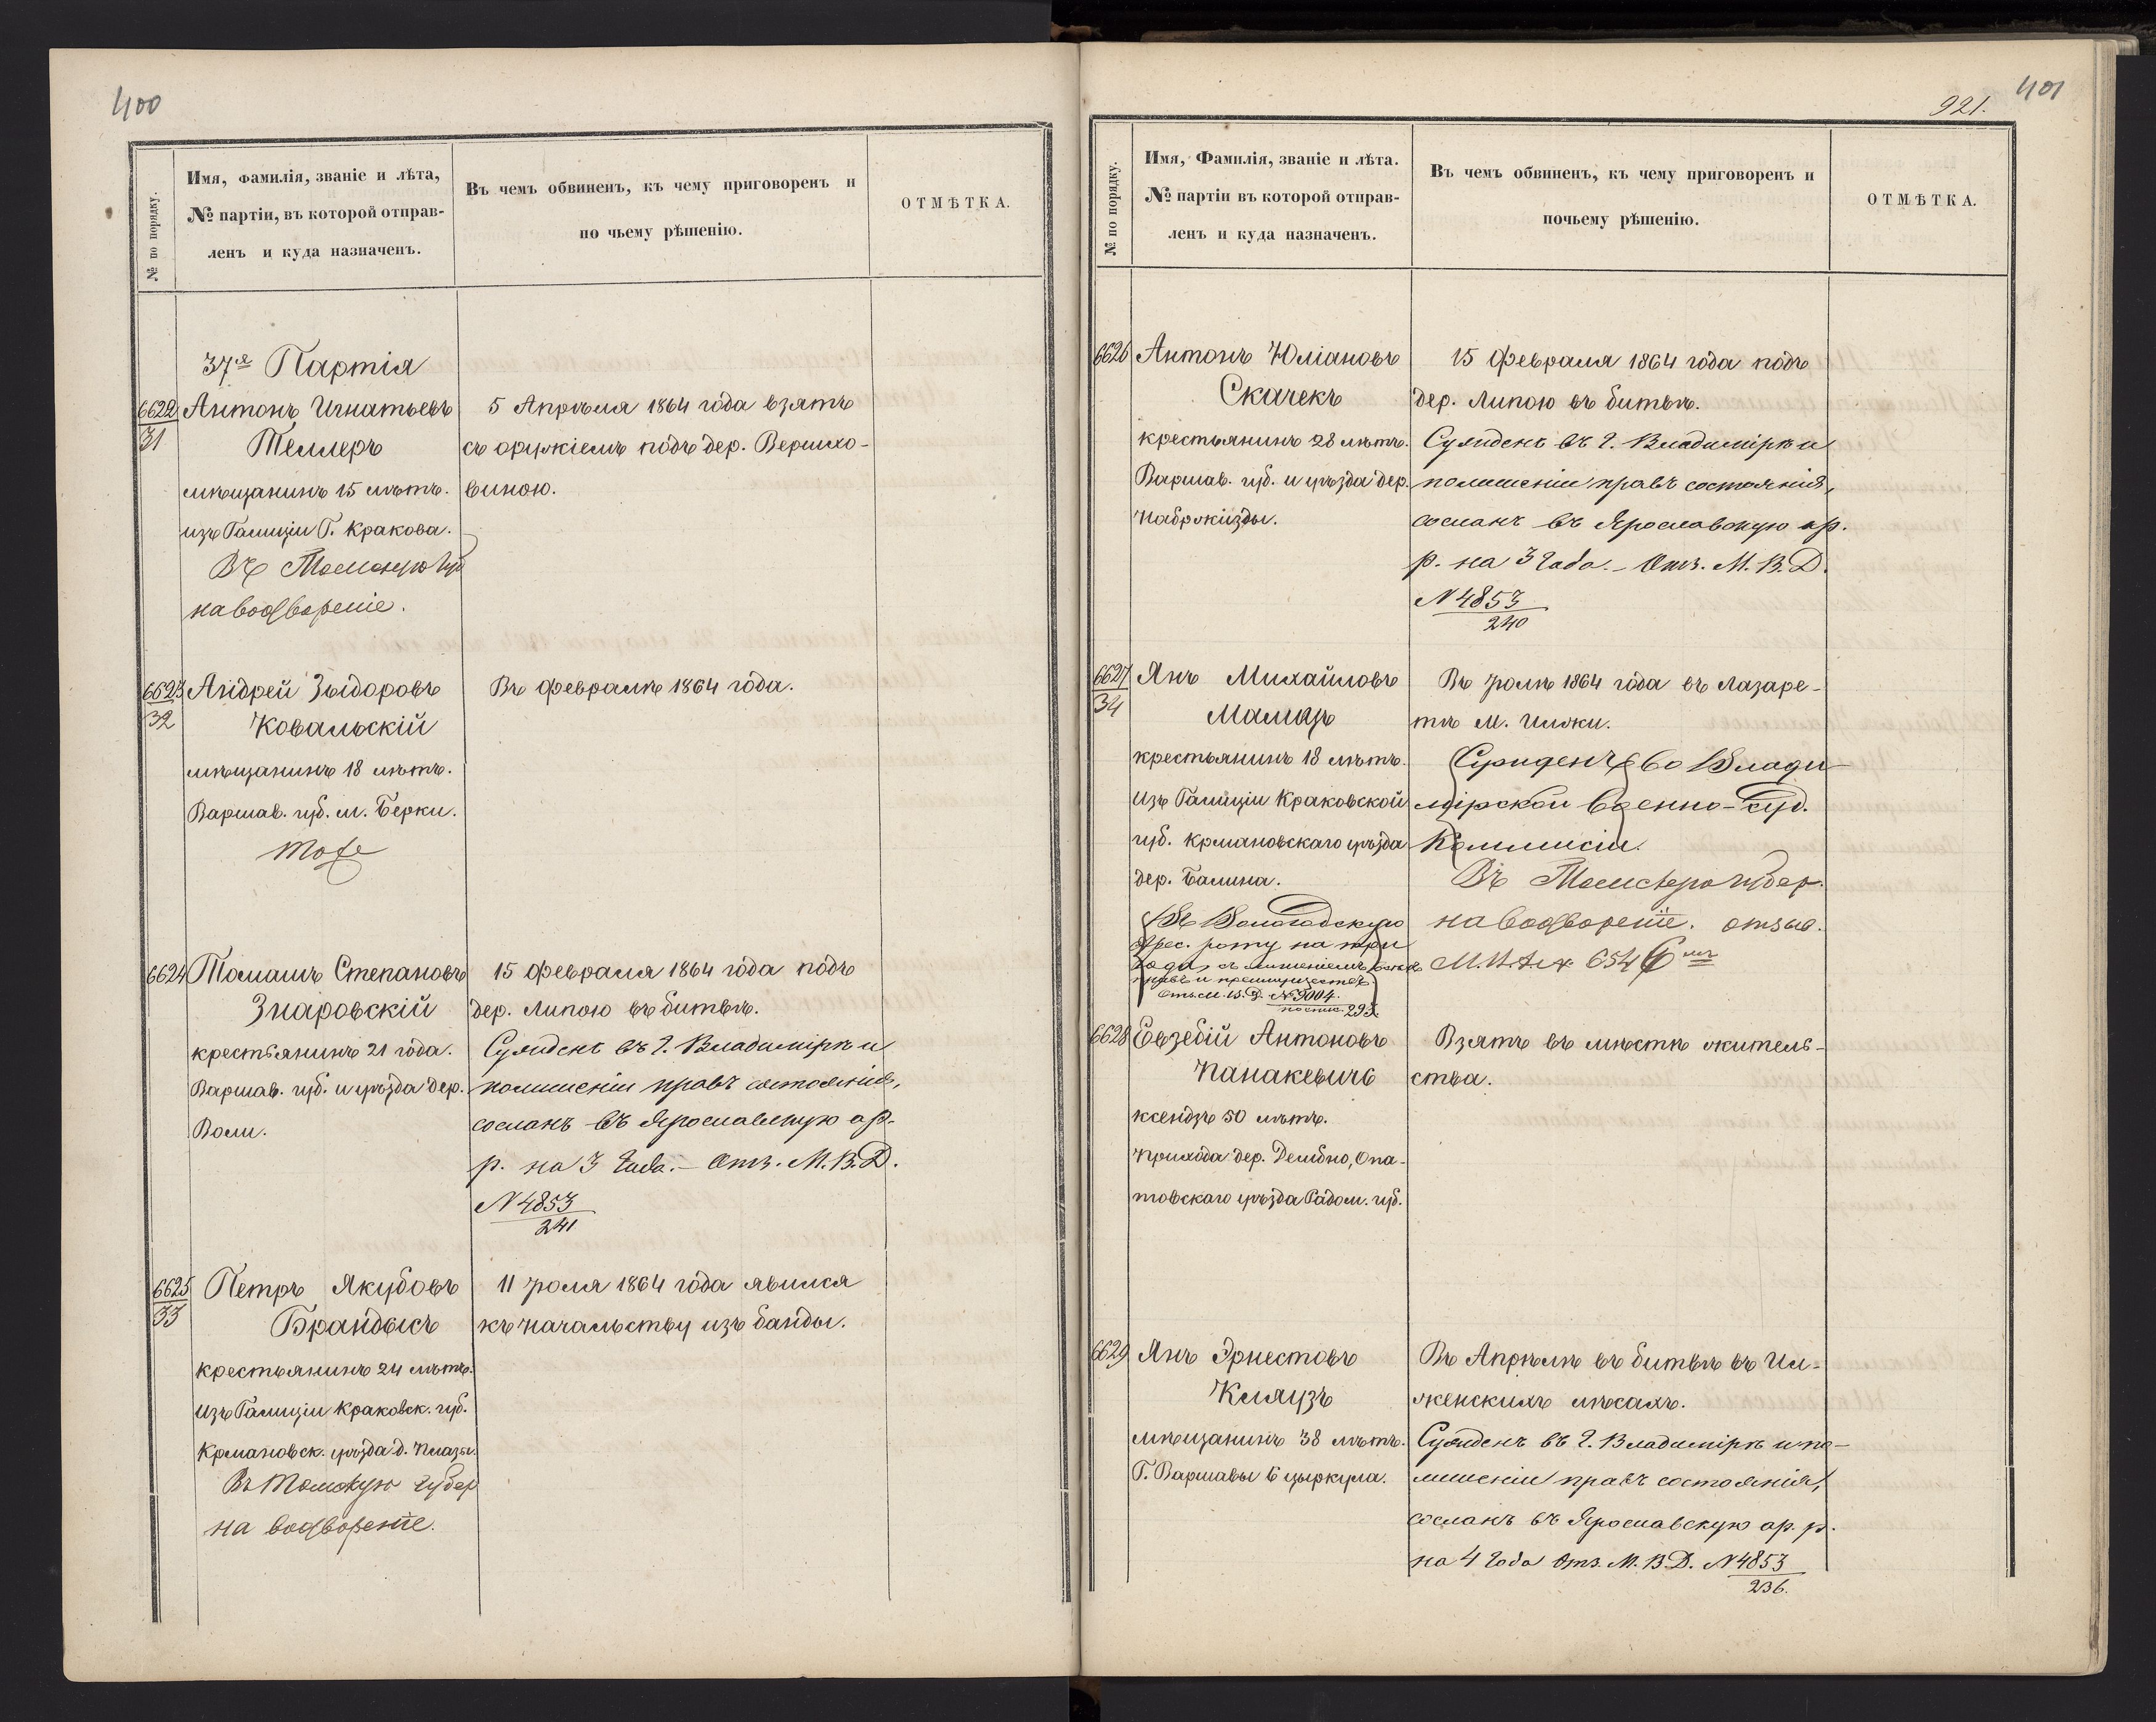 400
№ по порядку.
Имя, Фамилія, званіе и лѣта,
№ партіи, въ которой отправ-
ленъ и куда назначенъ.
Въ чемъ обвиненъ, къ чему приговоренъ и
по чьему рѣшенію.
ОТМѢТКА.
37я Партія
6622
31
Антонъ Игнатьевъ
Теллеръ
мѣщанинъ 15 лѣтъ.
изъ Галиціи Г. Кракова.
Въ Томскую губ
на водвореніе.
5 Апрѣля 1864 года взятъ
съ оружіемъ подъ дер. Вершхо-
виною.
6623
32
Андрей Зыдоровъ
Ковальскій
мѣщанинъ 18 лѣтъ.
Варшав. губ. м. Берки.
тоже
Въ Февралѣ 1864 года.
6624
Томашъ Степановъ
Знаровскій
крестьянинъ 21 года.
Варшав. губ. и уѣзда дер.
Воли.
15 Февраля 1864 года подъ
дер. Липою въ битвѣ.
Сужденъ въ г. Владимірѣ и
по лишеніи правъ состоянія,
сосланъ въ Ярославскую ар.
р. на 3 года. – Отз. М. В. Д.
N 4853
241
6625
33
Петръ Якубовъ
Брандысъ
крестьянинъ 24 лѣтъ.
Изъ Галиціи Краковск. губ.
Крмановск. уѣзда д. Плазы.
Въ Томскую губер
на водвореніе.
11 Іюля 1864 года явился
къ начальству изъ банды.
401
921.
№ по порядку.
Имя, Фамилія, званіе и лѣта.
№ партіи въ которой отправ-
ленъ и куда назначенъ.
Въ чемъ обвиненъ, къ чему приговоренъ и
почьему рѣшенію.
ОТМѢТКА.
6626
Антонъ Юліановъ
Скачекъ
крестьянинъ 28 лѣтъ.
Варшав. губ. и уѣзда дер.
15 Февраля 1864 года подъ
дер. Липою въ битвѣ.
Сужденъ въ г. Владимірѣ и
по лишеніи правъ состоянія,
сосланъ въ Ярославскую ар.
р. на 3 года. – Отз. М. В. Д.
N 4853
240
6627
34
Янъ Михайловъ
Малиръ
крестьянинъ 18 лѣтъ.
Изъ Галиціи Краковской
губ. Крмановскаго уѣзда
дер. Балина.
Въ Вологодскую
Арес. роту на три
года, съ лишеніемъ всѣхъ
правъ и преимуществъ.
Отз. М. В. Д. № 9004.
293.
Въ Іюлѣ 1864 года въ Лазаре-
тѣ М. Илжи.
Сужденъ во Влади-
мірской Военно-суд.
Коммисіи.
Въ Томскую губер.
на водвореніе. отзыв.
6628
Евзебій Антоновъ
Панакевичъ
ксендзъ 50 лѣтъ.
Прихода дер. Дембно, Опа-
товскаго уѣзда Радом. губ.
Взятъ въ мѣстѣ житель-
ства.
6629
Янъ Эрнестовъ
Клаузъ
мѣщанинъ 38 лѣтъ.
Г. Варшавы 6 цыркула.
Въ Апрѣлѣ въ битвѣ въ Ил-
женскихъ лѣсахъ.
Сужденъ въ г. Владимірѣ и по-
лишеніи правъ состоянія,
сосланъ въ Ярославскую ар. р.
на 4 года Отз. М. В. Д. N 4853
236.